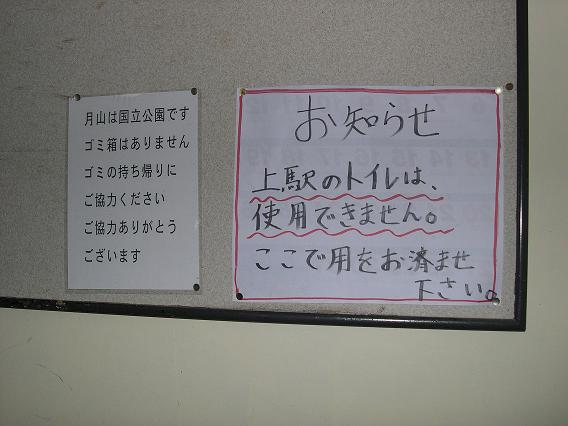 月山は国立公園です
ゴミ箱はありません
ゴミの持ち帰りに
ご協力ください
ご協力ありがとう
ございます
お知らせ
上駅のトイレは、
使用できません。
ここで用をお済ませ
下さい。